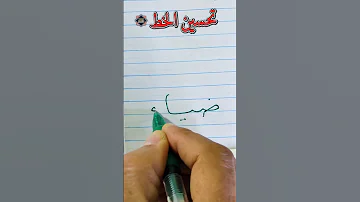 تحسين الخط
ضياء